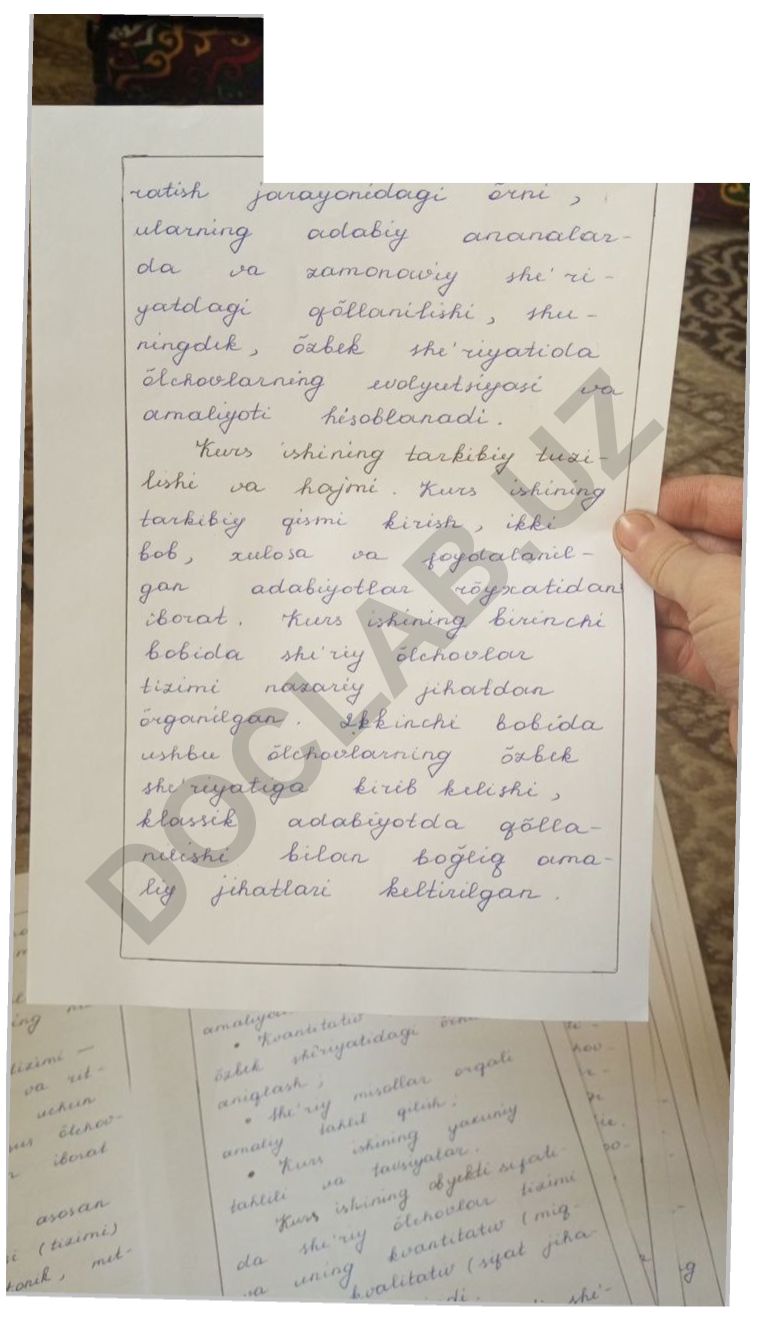 ratish jarayonidagi õrni,
ularning adabiy ananalar-
da va zamonawiy she'ri-
yatdagi qõllanilishi, shu-
ningdek, õzbek she'riyatida
õlchovlarning evolyutsiyasi va
amaliyoti hisoblanadi.
Kurs ishining tarkibiy tuzi-
lishi va hajmi. Kurs ishining
tarkibiy qismi kirish, ikki
bob, xulosa va foydalanil-
gan adabiyotlar rõyxatidan
iborat. Kurs ishining birinchi
bobida she'riy õlchovlar
tizimi nazariy jihatdan
õrganilgan. Ikkinchi bobida
ushbu õlchovlarning õzbek
she'riyatiga kirib kelishi,
klassik adabiyotda qõlla-
nilishi bilan boğliq ama-
liy jihatlari keltirilgan.
DOCLAB.UZ
• Kvantitativ
õzbek she'riyatidagi
aniqlash;
• She'riy misollar orqali
amaliy tahlil qilish;
• Kurs ishining yakuniy
tahlili va tavsiyalar.
Kurs ishining obyekti sifati-
da she'riy õlchovlar tizimi
va uning kvantitativ (miq-
kvalitativ (sifat jiha-
she'-
tizimi —
va rit-
uchun
õlchov-
iborat
asosan
(tizimi)
tonik, met-